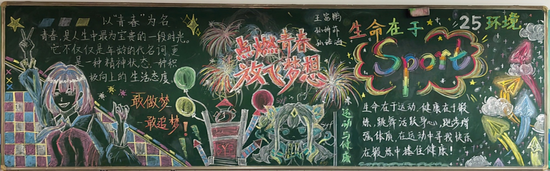 以“青春”为名
青春,是人生中最为宝贵的一段时光,
它不仅仅是年龄的代名词,更
是一种精神状态,一种积
极向上的生活态度。
敢做梦
敢追梦!
点燃青春
放飞梦想
运动与健康
生命在于
Sport
25环境
生命在于运动,健康在于锻
炼,跳舞活跃身心,跑步增
强体质,在运动中寻找快乐
在锻炼中播住健康!